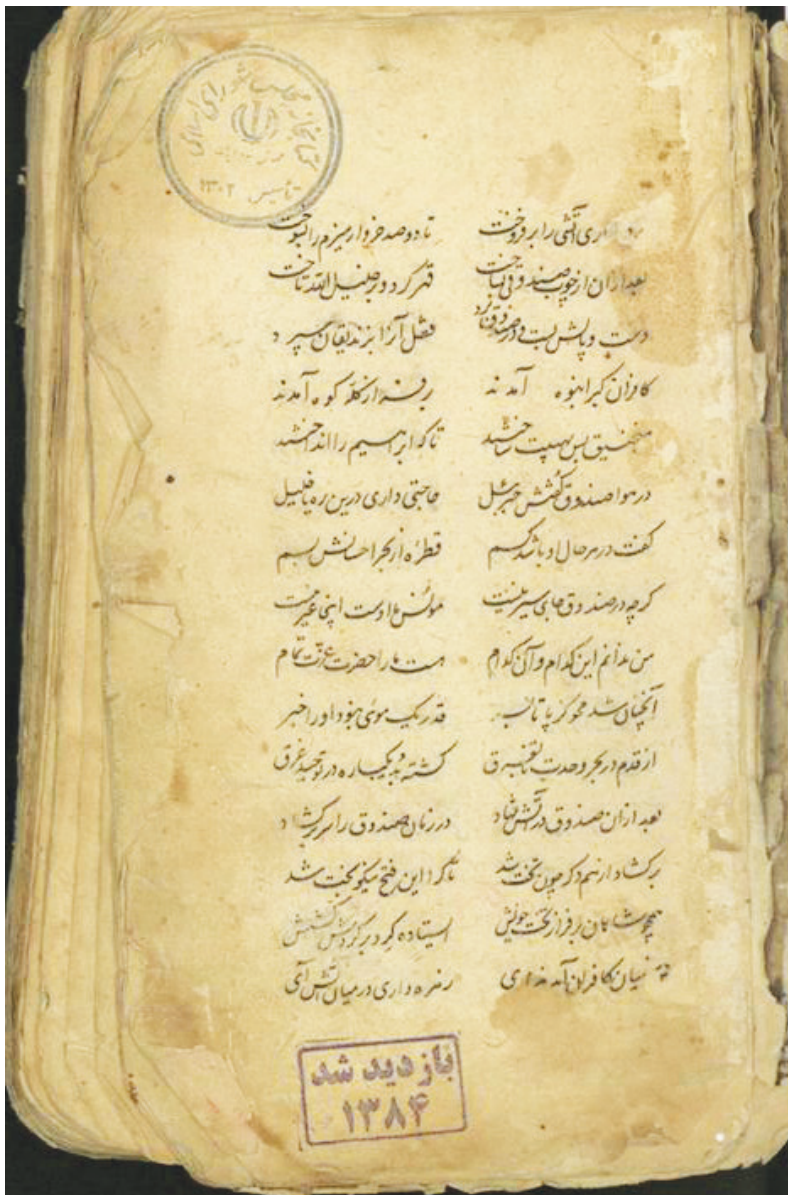 کتابخانه مجلس شورای اسلامی
تأسیس ۱۳۰۲
آتشی را برفروخت تا دو صد خروار هیزم را بسوخت
بعد ازان از چوب صندوقی بساخت قهر کرد و بر خلیل الله تاخت
دست و پایش بست و در صندوق قفل آنرا بزندیقان سپرد
کافران کبر انبوه آمدند آمدند
منجنیق بس مهیب ساختند تا که ابراهیم را انداختند
در هوا صندوق گفتش جبرئیل حاجتی داری درین ره یا خلیل
گفت در هر حال او باشد کسم قطرهٔ از بحر احسانش بسم
گرچه در صندوق جای سیر نیست مونس ما اوست اینجا غیر نیست
من ندانم این کدام و آن کدام هست ما را حضرت عزت تمام
آنچنان شد محو کز پا تا بسر قدر یک موی نبود او را خبر
از قدم در بحر وحدت تا بفرق گشته بد یکباره در توحید غرق
بعد ازان صندوق در آتش نهاد در زمان صندوق را سر برکشاد
برکشاد از هم دگر چون تخت شد این فتح نیکو بخت شد
همچو شاهان بر فراز تخت خویش ایستاده گرد بر گردش
میان کافران آمد ندای زهره داری در میان آتش آی
بازدید شد
۱۳۸۴